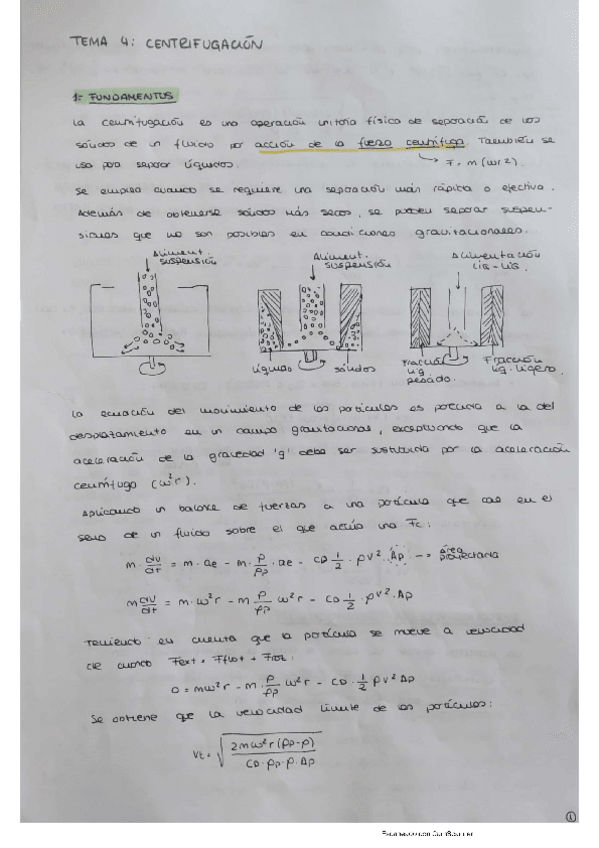 TEMA 4: CENTRIFUGACIÓN
1- FUNDAMENTOS
La centrifugación es una operación unitaria física de separación de los
sólidos de un fluido por acción de la fuerza centrífuga. También se
usa para separar líquidos.
F = m(wr²).
Se emplea cuando se requiere una separación más rápida o efectiva.
Además de obtenerse sólidos más secos, se pueden separar suspen-
siones que no son posibles en condiciones gravitacionales.
Aliment. suspensión
Aliment. suspensión
Alimentación Liq-Liq.
líquido
sólidos
Fracción liq. pesado.
Fracción liq. ligero.
La ecuación del movimiento de las partículas es parecida a la del
desplazamiento en un campo gravitacional, exceptuando que la
aceleración de la gravedad 'g' debe ser sustituida por la aceleración
centrífuga (w²r).
Aplicando un balance de fuerzas a una partícula que cae en el
seno de un fluido sobre el que actúa una Fc:
m·dv/dt = m·ae - m·ρ/ρp·ae - CD 1/2·ρv²·Ap → área proyectada
m dv/dt = m·w²r - m ρ/ρp w²r - CD 1/2·ρv²·Ap
Teniendo en cuenta que la partícula se mueve a velocidad
de cuando Fext = Fflot + Froz:
0 = mw²r - m·ρ/ρp w²r - CD·1/2 ρv²Ap
Se obtiene que la velocidad límite de las partículas:
Vt = √(2mw²r(ρp-ρ)/(CD·ρp·ρ·Ap))
1
Escaneado con CamScanner